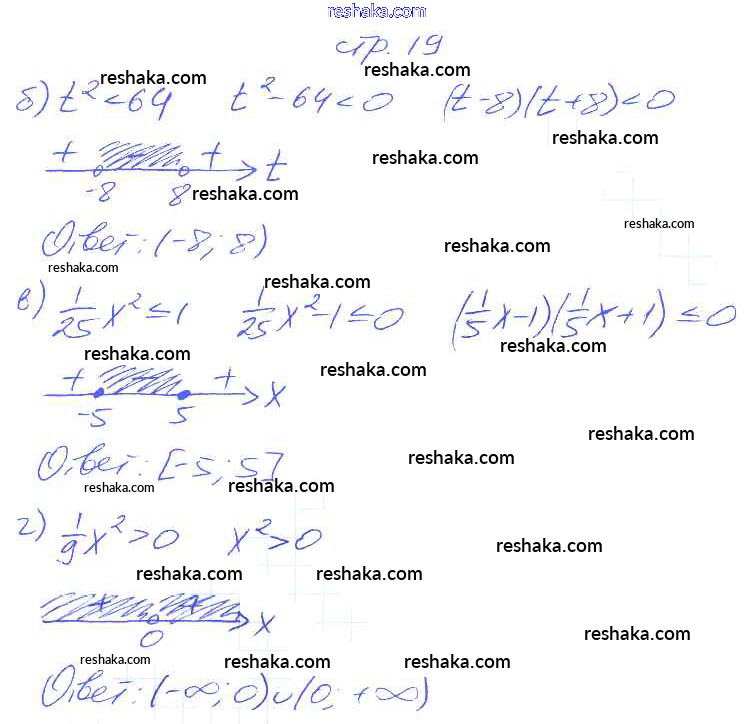 reshaka.com
стр. 19
reshaka.com
reshaka.com
б) t² < 64 t² - 64 < 0 (t - 8)(t + 8) < 0
reshaka.com
reshaka.com
+ - + t
-8 8
reshaka.com
reshaka.com
Ответ: (-8; 8)
reshaka.com
reshaka.com
reshaka.com
в) 1/25 x² ≤ 1 1/25 x² - 1 ≤ 0 (1/5 x - 1)(1/5 x + 1) ≤ 0
reshaka.com
reshaka.com
reshaka.com
+ - + x
-5 5
reshaka.com
reshaka.com
Ответ: [-5; 5]
reshaka.com
reshaka.com
г) 1/9 x² > 0 x² > 0
reshaka.com
reshaka.com
reshaka.com
+ + x
0
reshaka.com
reshaka.com
reshaka.com
reshaka.com
Ответ: (-∞; 0)∪(0; +∞)